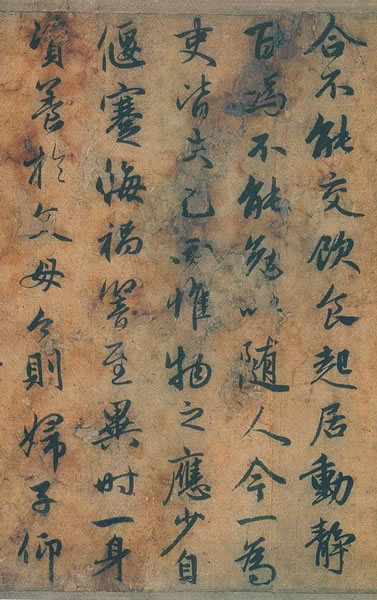 合不能交飲食起居動靜
百為不能勉以隨人今一為
吏皆失己而惟物之應少自
偃蹇悔禍響至異時一身
資養於父母今則婦子仰